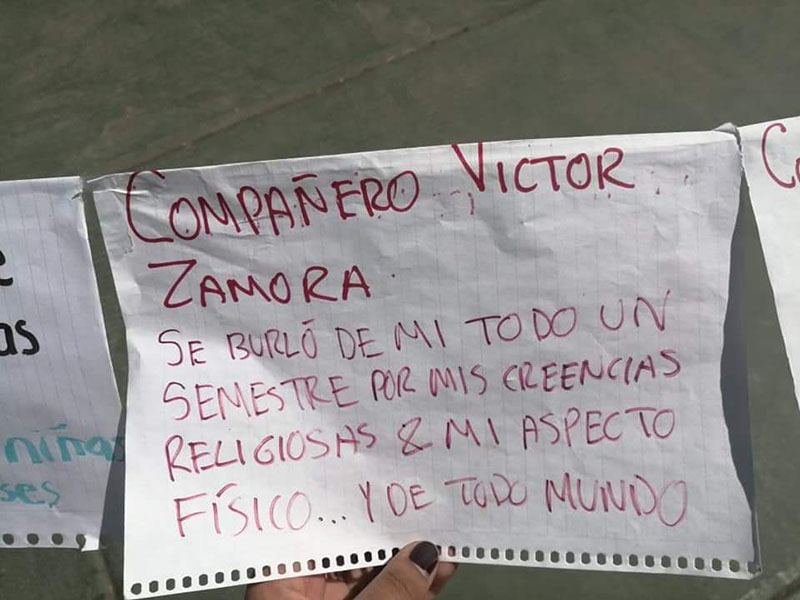 COMPAÑERO VICTOR
ZAMORA.
SE BURLÓ DE MI TODO UN
SEMESTRE POR MIS CREENCIAS
RELIGIOSAS & MI ASPECTO
FÍSICO... Y DE TODO MUNDO
as
niñas
ses